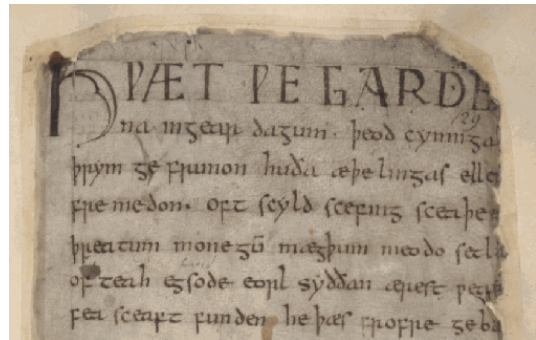 HǷÆT ǷE GARDE
na ingear dagum. þeod cyninga
þrym ge frunon huða æþelingas ellen
fre medon. oft scyld scefing sceaþen
þreatum monegū mægþum meodo setla
of teah egsode eorl syððan ærest ƿear
fea sceaft funden he þæs frofre geba